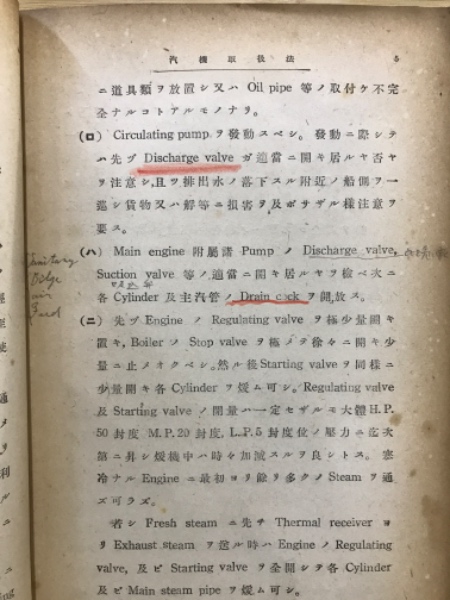 汽機取扱法 5
ニ道具類ヲ放置シ又ハ Oil pipe 等ノ取付ケ不完
全ナルコトアルモノナリ。
(ロ) Circulating pump ヲ發動スベシ。發動ニ際シテ
ハ先ヅ Discharge valve ガ適當ニ開キ居ルヤ否ヤ
ヲ注意シ,且ツ排出水ノ落下スル附近ノ船側ヲ一
巡シ貨物又ハ艀等ニ損害ヲ及ボサザル様注意ヲ
要ス。
(ハ) Main engine 附屬諸 Pump ノ Discharge valve,
Suction valve 等ノ適當ニ開キ居ルヤヲ檢ベ次ニ
各 Cylinder 及主汽管ノ Drain cock ヲ開放ス。
Sanitary
Bilge
air
Feed
(ニ) 先ヅ Engine ノ Regulating valve ヲ極少量開キ
置キ, Boiler ノ Stop valve ヲ極メテ徐々ニ開キ少
量ニ止メオクベシ。然ル後 Starting valve ヲ同様ニ
少量開キ各 Cylinder ヲ煖ム可シ。Regulating valve
及 Starting valve ノ開量ハ一定セザルモ大體 H.P.
50 封度 M.P. 20 封度, L.P. 5 封度位ノ壓力ニ迄次
第ニ昇シ煖機中ハ時々加減スルヲ良シトス。寒
冷ナル Engine ニ最初ヨリ餘リ多クノ Steam ヲ通
ズ可ラズ。
若シ Fresh steam ニ先チ Thermal receiver ヨ
リ Exhaust steam ヲ送ル時ハ Engine ノ Regulating
valve, 及ビ Starting valve ヲ全開シテ各 Cylinder
及ビ Main steam pipe ヲ煖ム可シ。